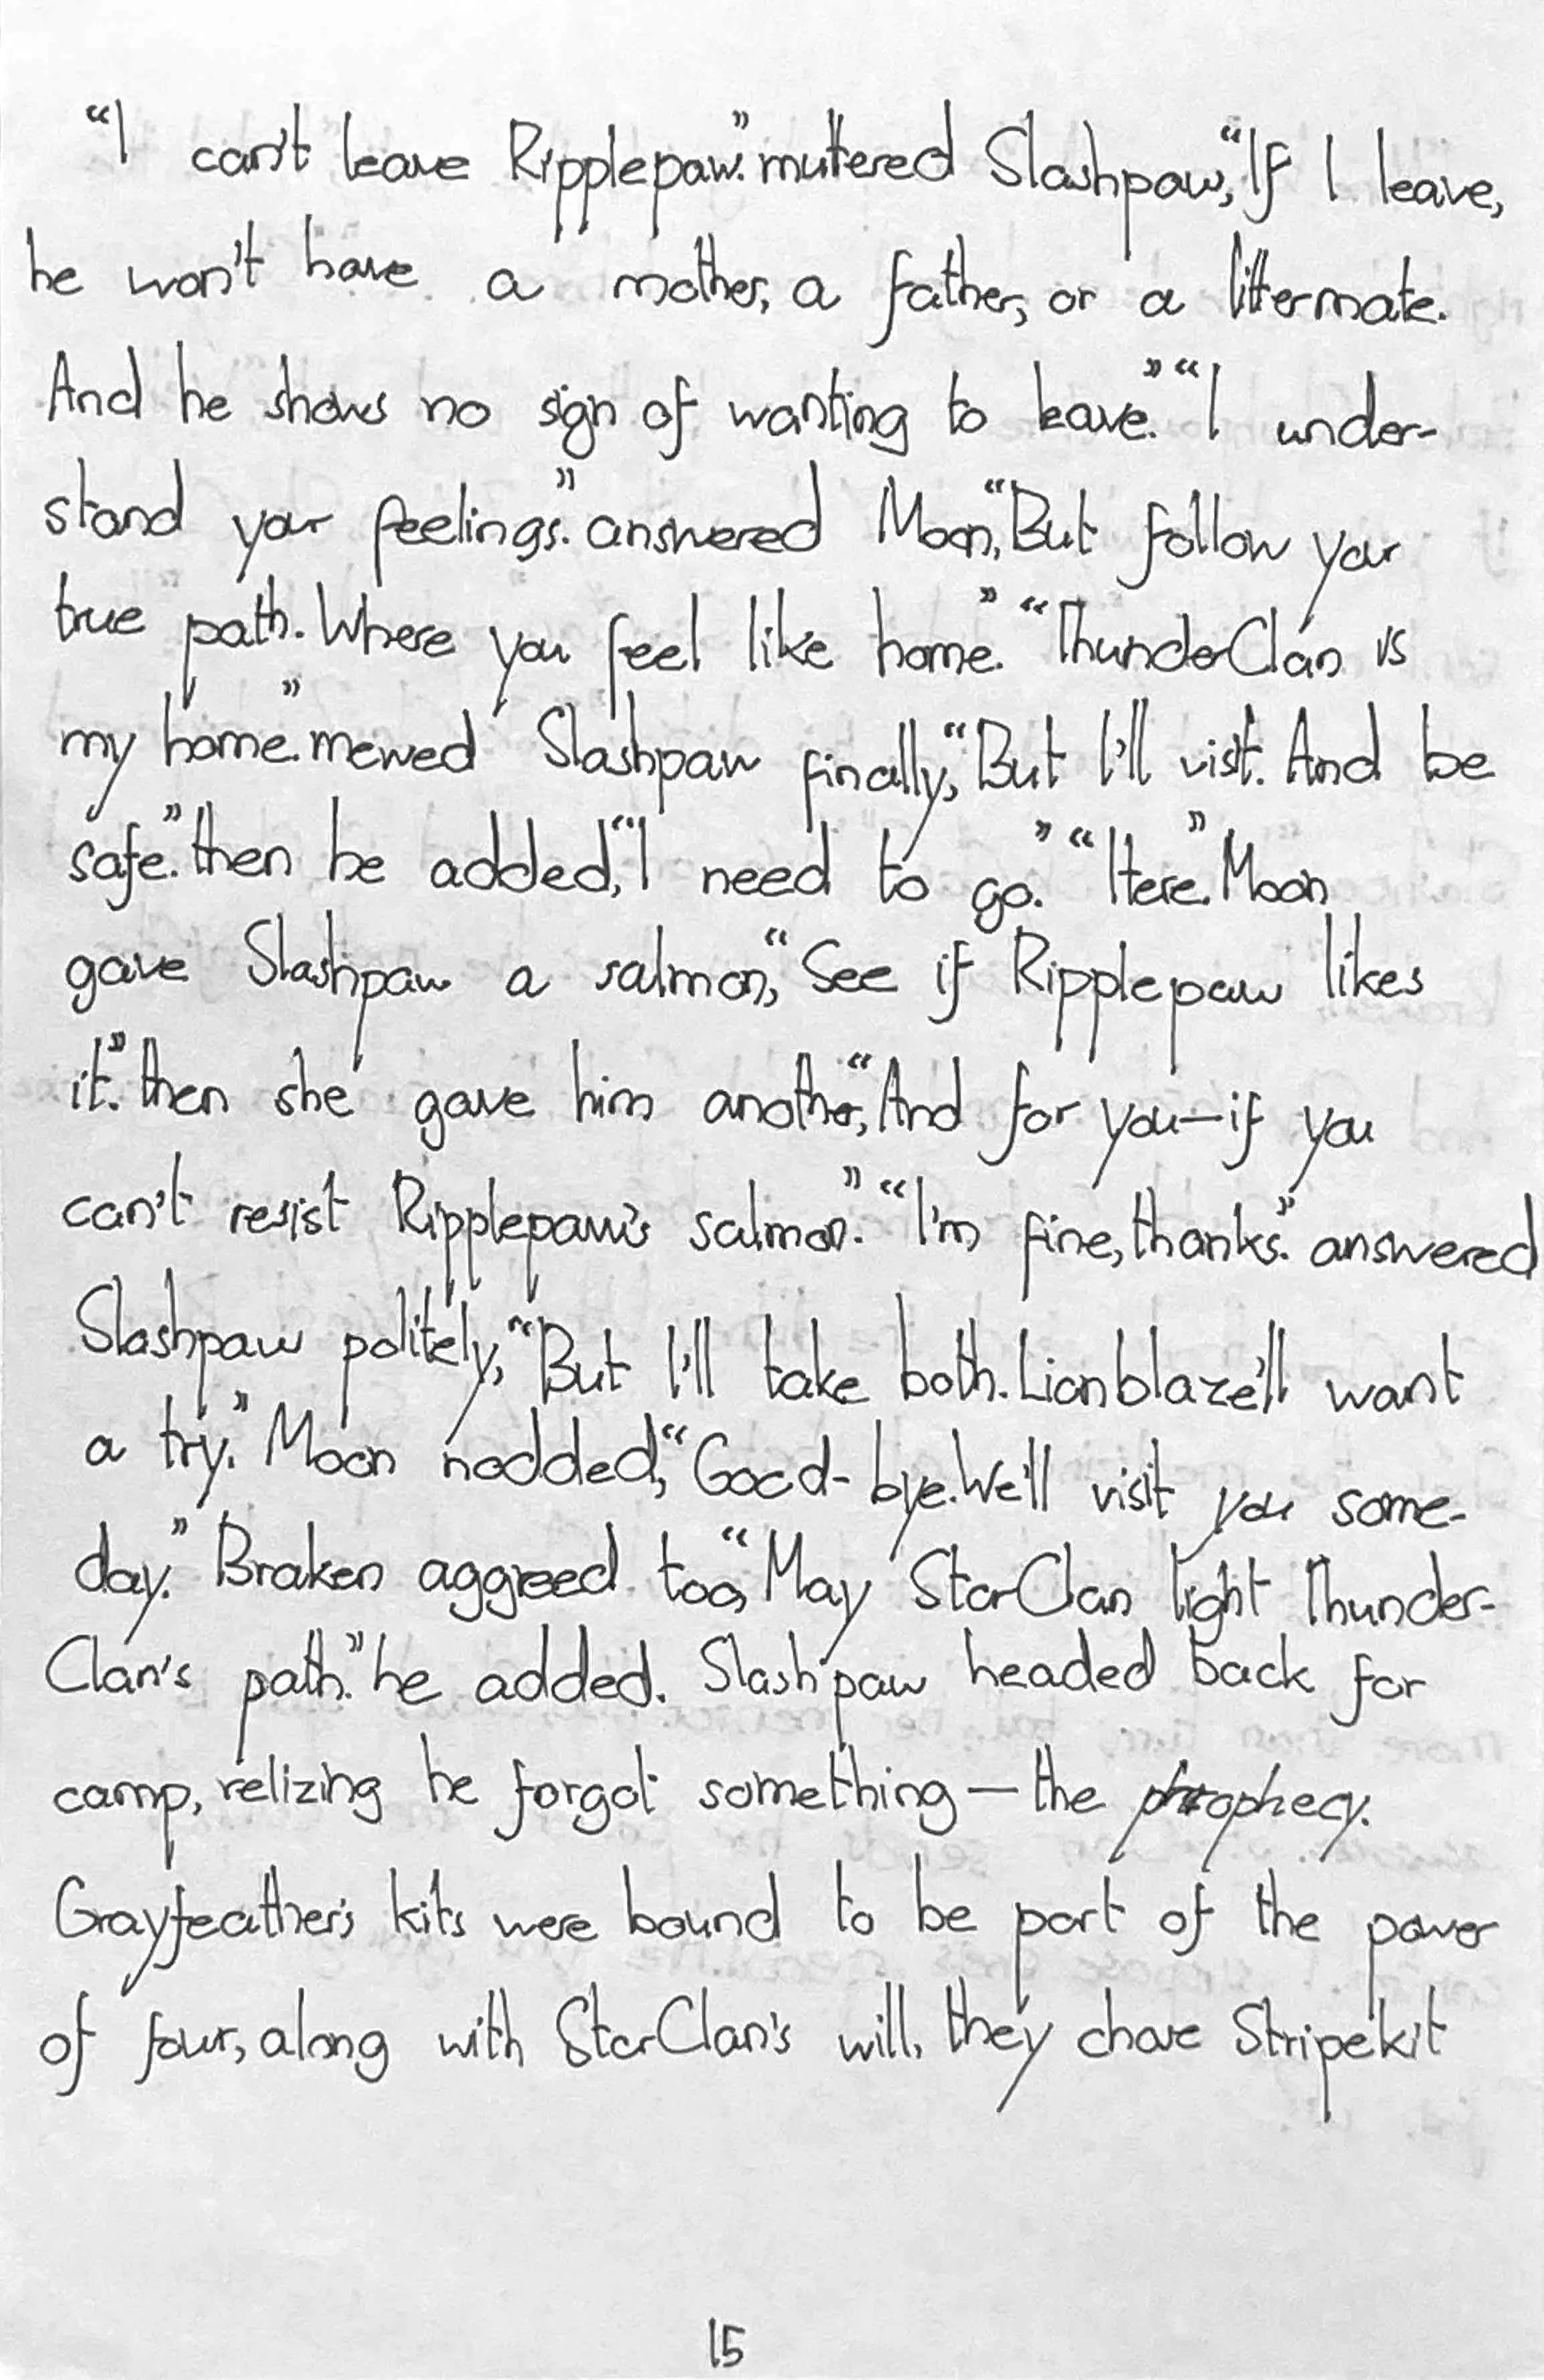 “I can't leave Ripplepaw.” muttered Slashpaw, “If I leave,
he won't have a mother, a father, or a littermate.
And he shows no sign of wanting to leave.” “I under-
stand your feelings.” answered Moon, “But follow your
true path. Where you feel like home.” “ThunderClan is
my home.” mewed Slashpaw finally, “But I'll vist. And be
safe.” then he added, “I need to go.” “Here.” Moon
gave Slashpaw a salmon, “See if Ripplepaw likes
it.” then she gave him another, “And for you—if you
can't resist Ripplepaw's salmon.” “I'm fine, thanks.” answered
Slashpaw politely, “But I'll take both. Lionblaze'll want
a try.” Moon nodded, “Good-bye. We'll visit you some-
day.” Braken aggreed too, “May StarClan light Thunder-
Clan's path.” he added. Slashpaw headed back for
camp, relizing he forgot something — the prophecy.
Grayfeather's kits were bound to be part of the power
of four, along with StarClan's will, they chose Stripekit
15